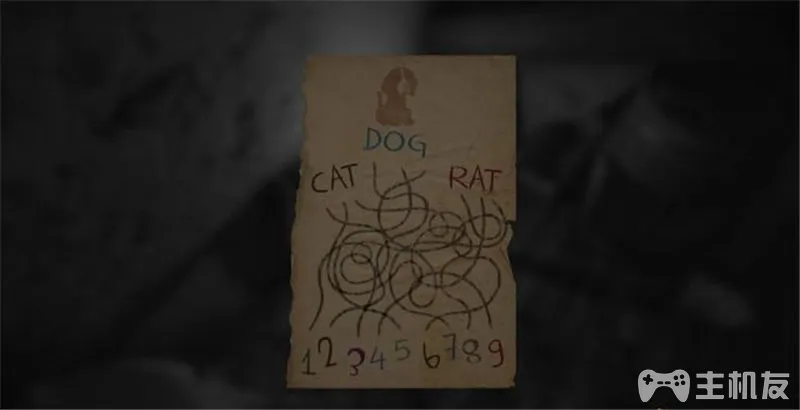 DOG
CAT RAT
1 2 3 4 5 6 7 8 9
主机友